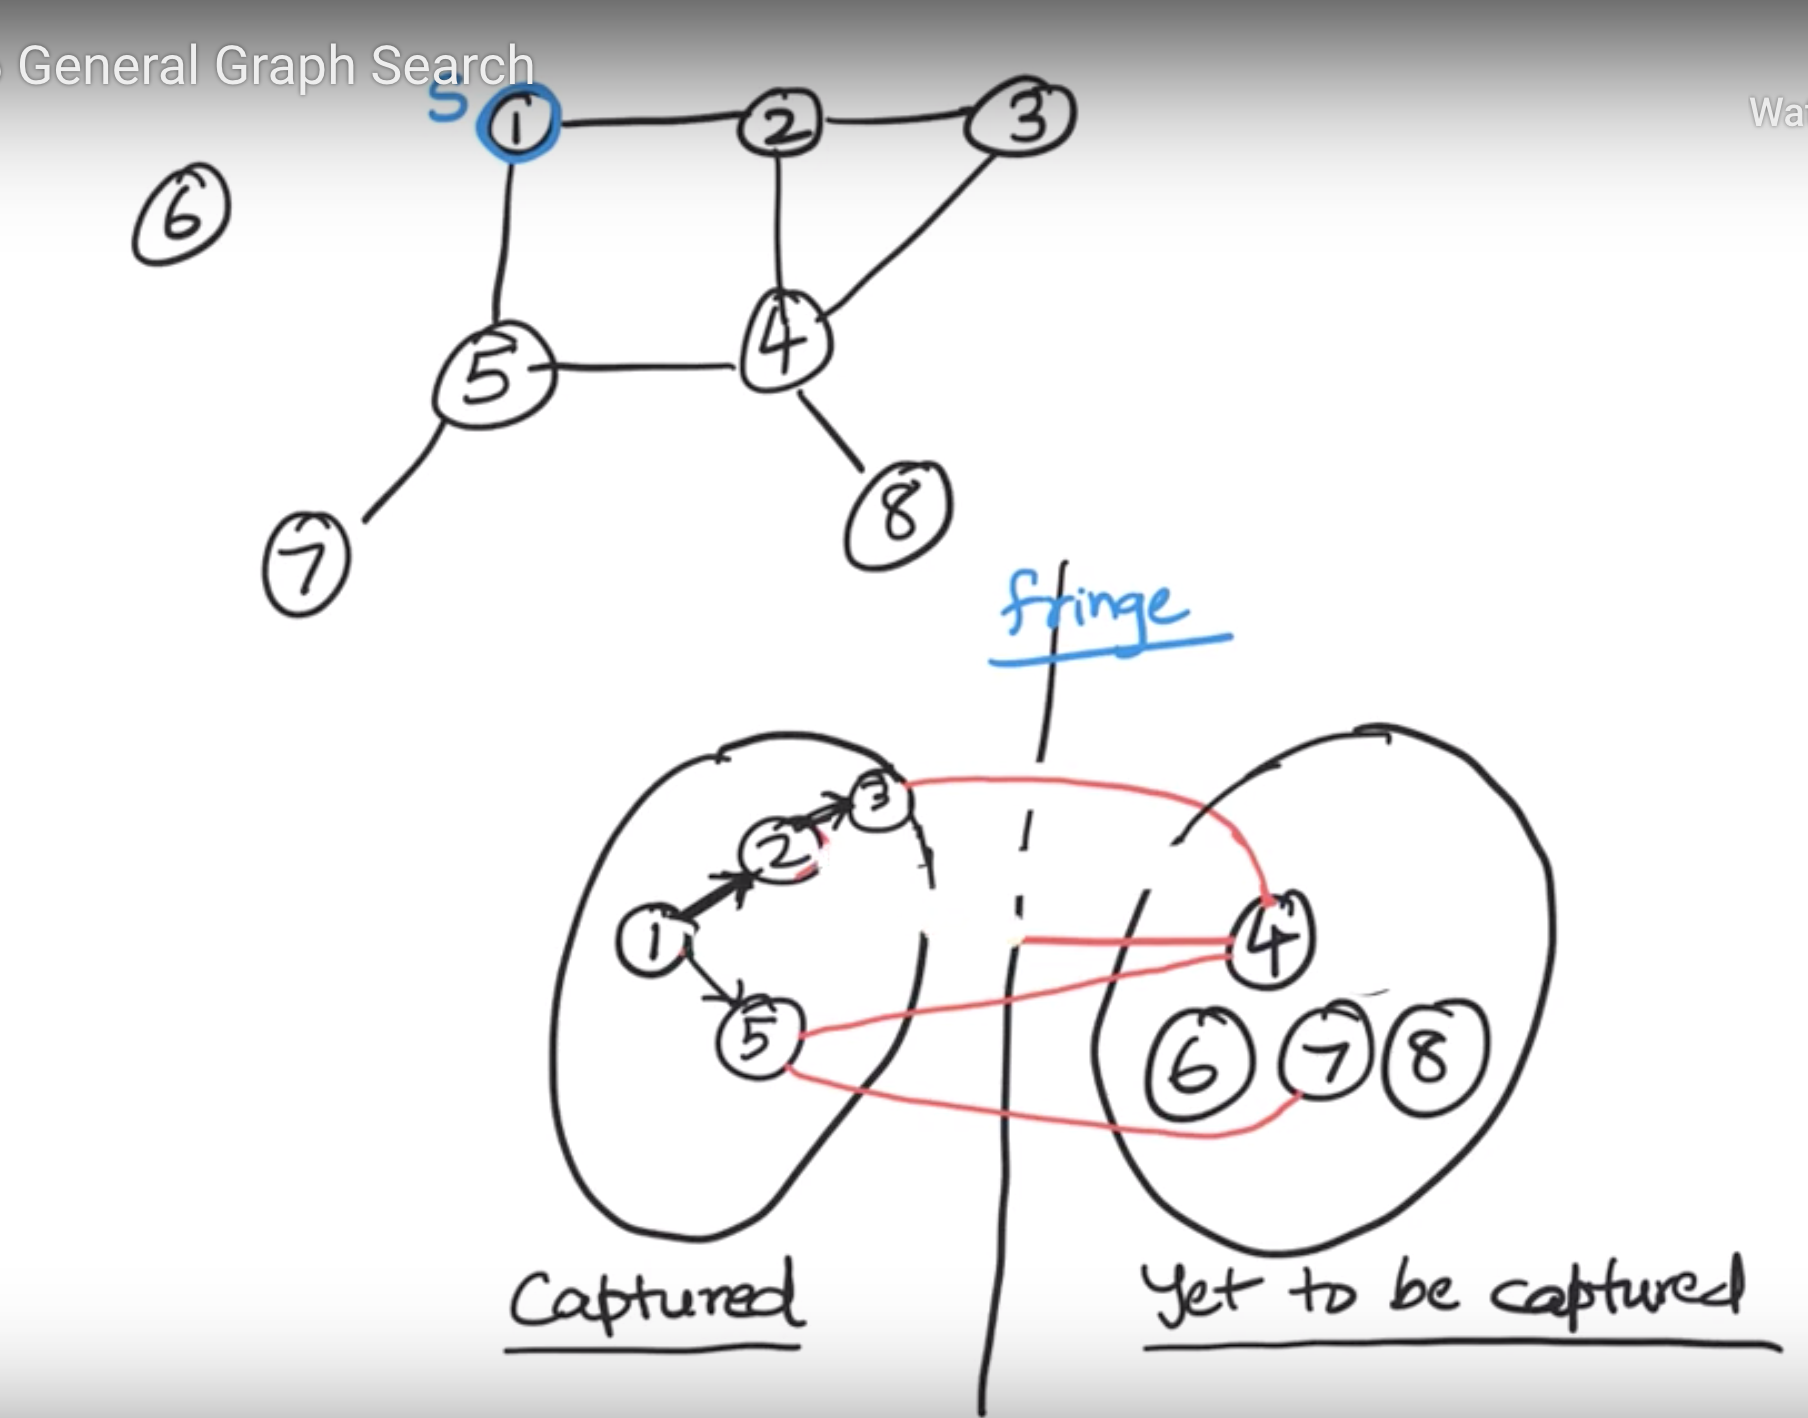 General Graph Search
Wat
S
1
2
3
6
5
4
7
8
fringe
3
2
1
5
4
6
7
8
Captured
Yet to be captured